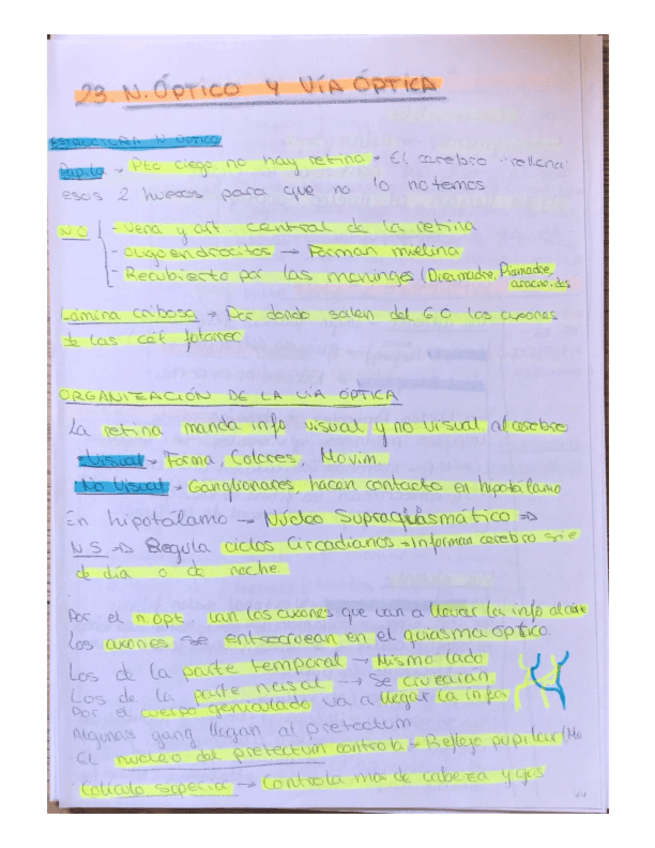 23. N. ÓPTICO Y VÍA ÓPTICA
ESTRUCTURA N ÓPTICO
Papila → Pto ciego, no hay retina → El cerebro "rellena"
esos 2 huecos para que no lo notemos
N.O
- Vena y art. central de la retina
- oligoendrocitos → Forman mielina
- Recubierto por las meninges (Duramadre, Piamadre,
aracnoides
Lámina cribosa → Por donde salen del G.O los axones
de las cél fotorrec
ORGANIZACIÓN DE LA VÍA ÓPTICA
La retina manda info visual y no visual al cerebro
- Visual → Forma, Colores, Movim.
- No Visual → Ganglionares, hacen contacto en hipotálamo
En hipotálamo → Núcleo Supraquiasmático ⇒
N.S ⇒ Regula ciclos Circadianos → Informan cerebro si e
de día o de noche
Por el n.ópt. van los axones que van a llevar la info al
Los axones se entrecruzan en el quiasma óptico.
Los de la parte temporal → Mismo lado
Los de la parte nasal → Se cruzarán
Por el cuerpo geniculado va a llegar la info
Algunas gang llegan al pretectum
El núcleo del pretectum controla → Reflejo pupilar (Mo
Colículo superia → Controla mov de cabeza y